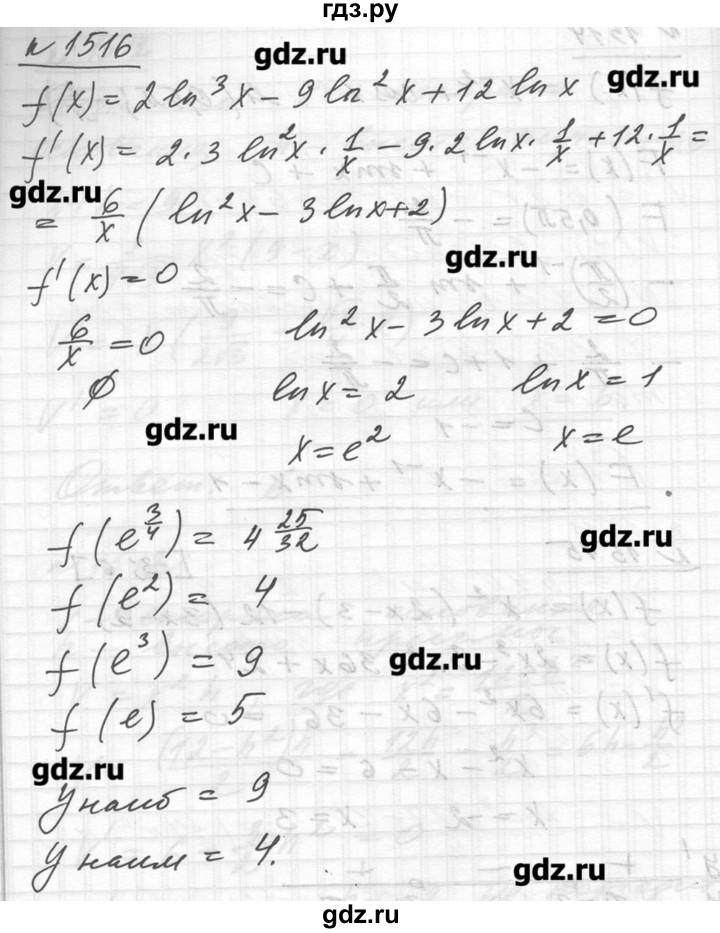 гдз.ру
n 1516
gdz.ru
f(x) = 2 ln³x - 9 ln²x + 12 ln x
gdz.ru
f'(x) = 2·3 ln²x · 1/x - 9·2 lnx · 1/x + 12· 1/x =
gdz.ru
= 6/x (ln²x - 3lnx+2)
gdz.ru
f'(x) = 0
6/x = 0 ln²x - 3lnx+2 = 0
∅ lnx = 2 lnx = 1
gdz.ru
x = e² x = e
f(e^(3/4)) = 4 25/32
gdz.ru
f(e²) = 4
f(e³) = 9
gdz.ru
f(e) = 5
gdz.ru
Унаиб = 9
Унаим = 4.
gdz.ru
gdz.ru